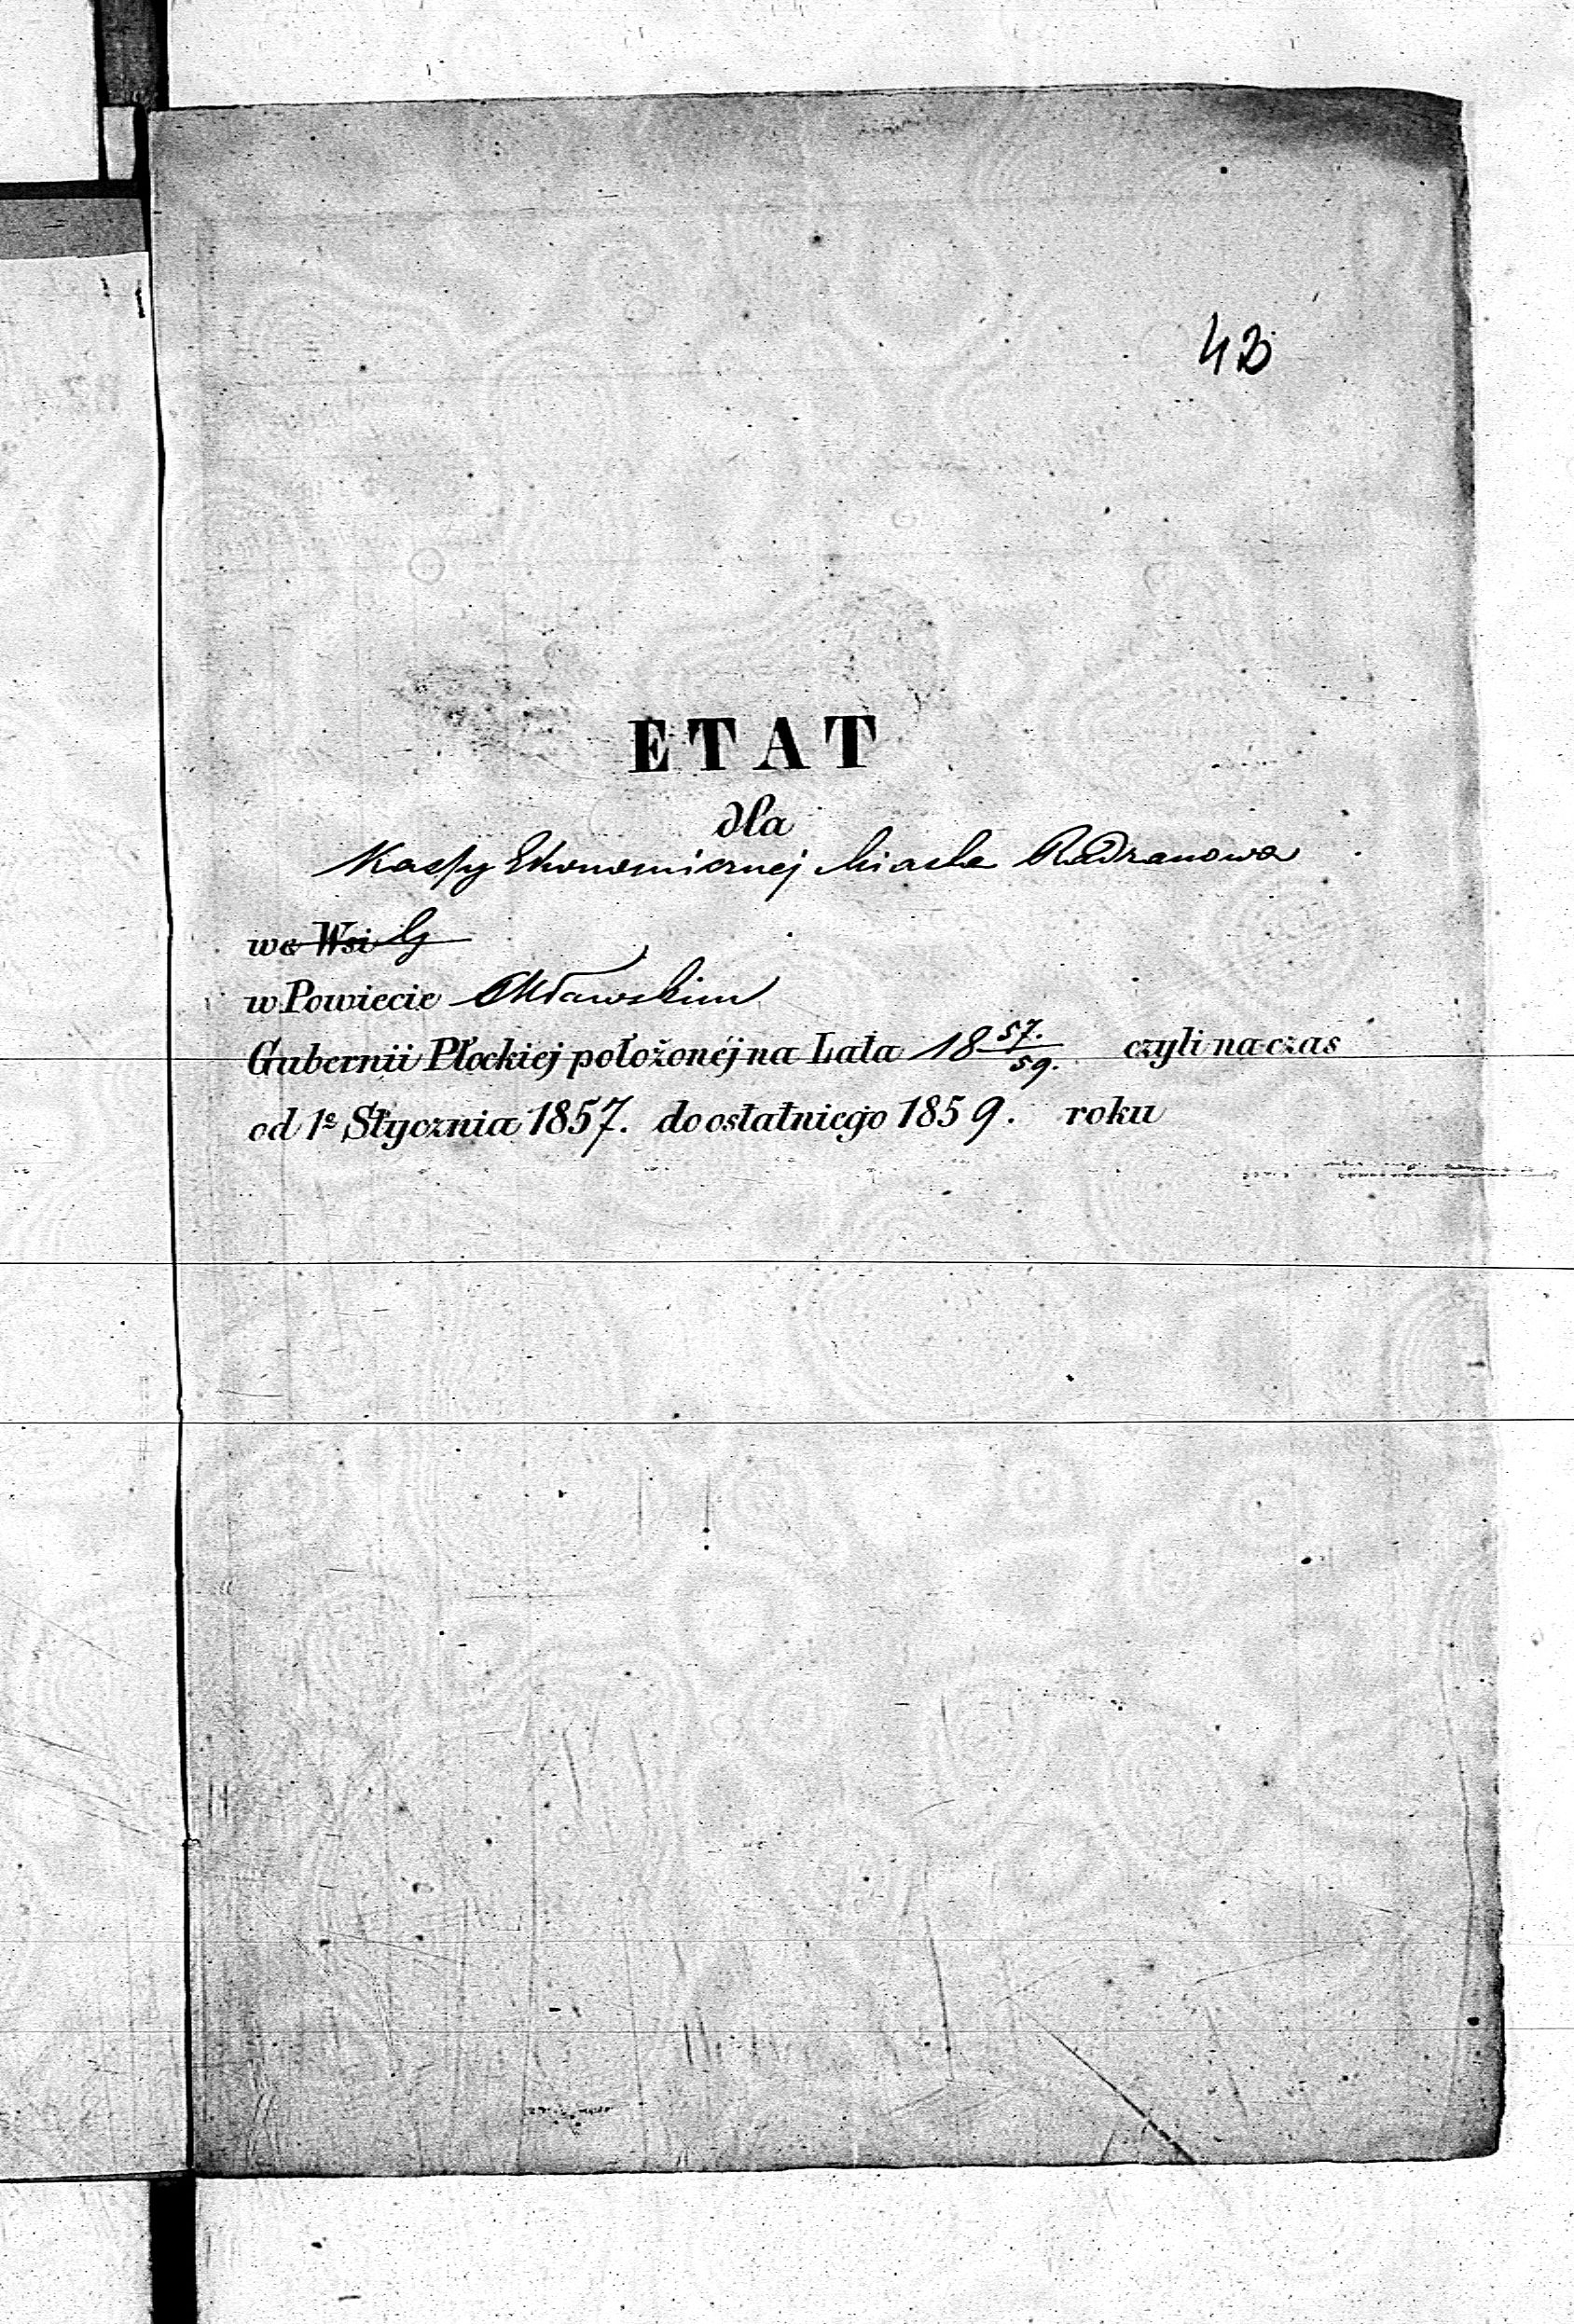 43
ETAT
dla
Kassy Ekonomicznej Miasta Radzanowa
we Wsi
w Powiecie Mławskim
Gubernii Płockiej położonéj na Lata 18 57./59. czyli na czas
od 1º Stycznia 1857. do ostatniego 1859. roku